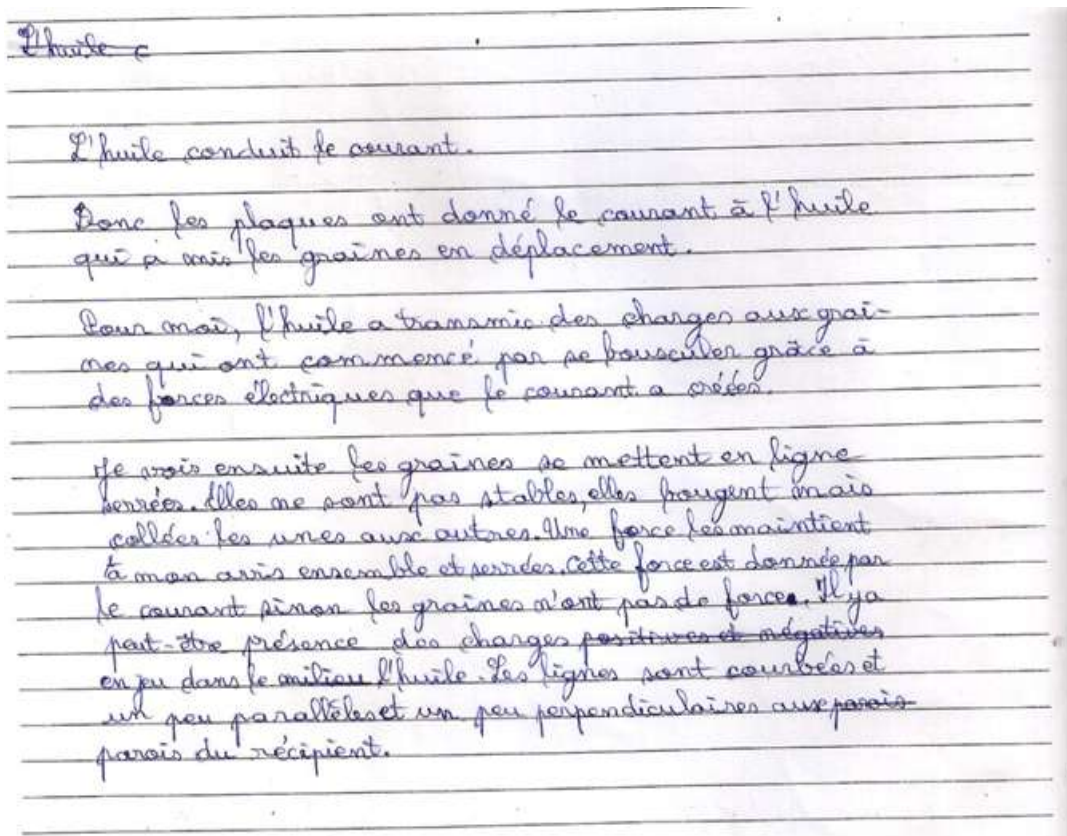 L'huile c
L'huile conduit le courant.
Donc les plaques ont donné le courant à l'huile
qui a mis les graines en déplacement.
Pour moi, l'huile a transmic des charges aux grai-
nes qui ont commencé par se bousculer grâce à
des forces électriques que le courant a créées.
Je vois ensuite les graines se mettent en ligne
serrées. Elles ne sont pas stables, elles bougent mais
collées les unes aux autres. Une force les maintient
à mon avis ensemble et serrées. Cette force est donnée par
le courant sinon les graines n'ont pas de force. Il y a
peut-être présence des charges positives et négatives
en jeu dans le milieu l'huile. Les lignes sont courbées et
un peu parallèles et un peu perpendiculaires aux parois
parois du récipient.